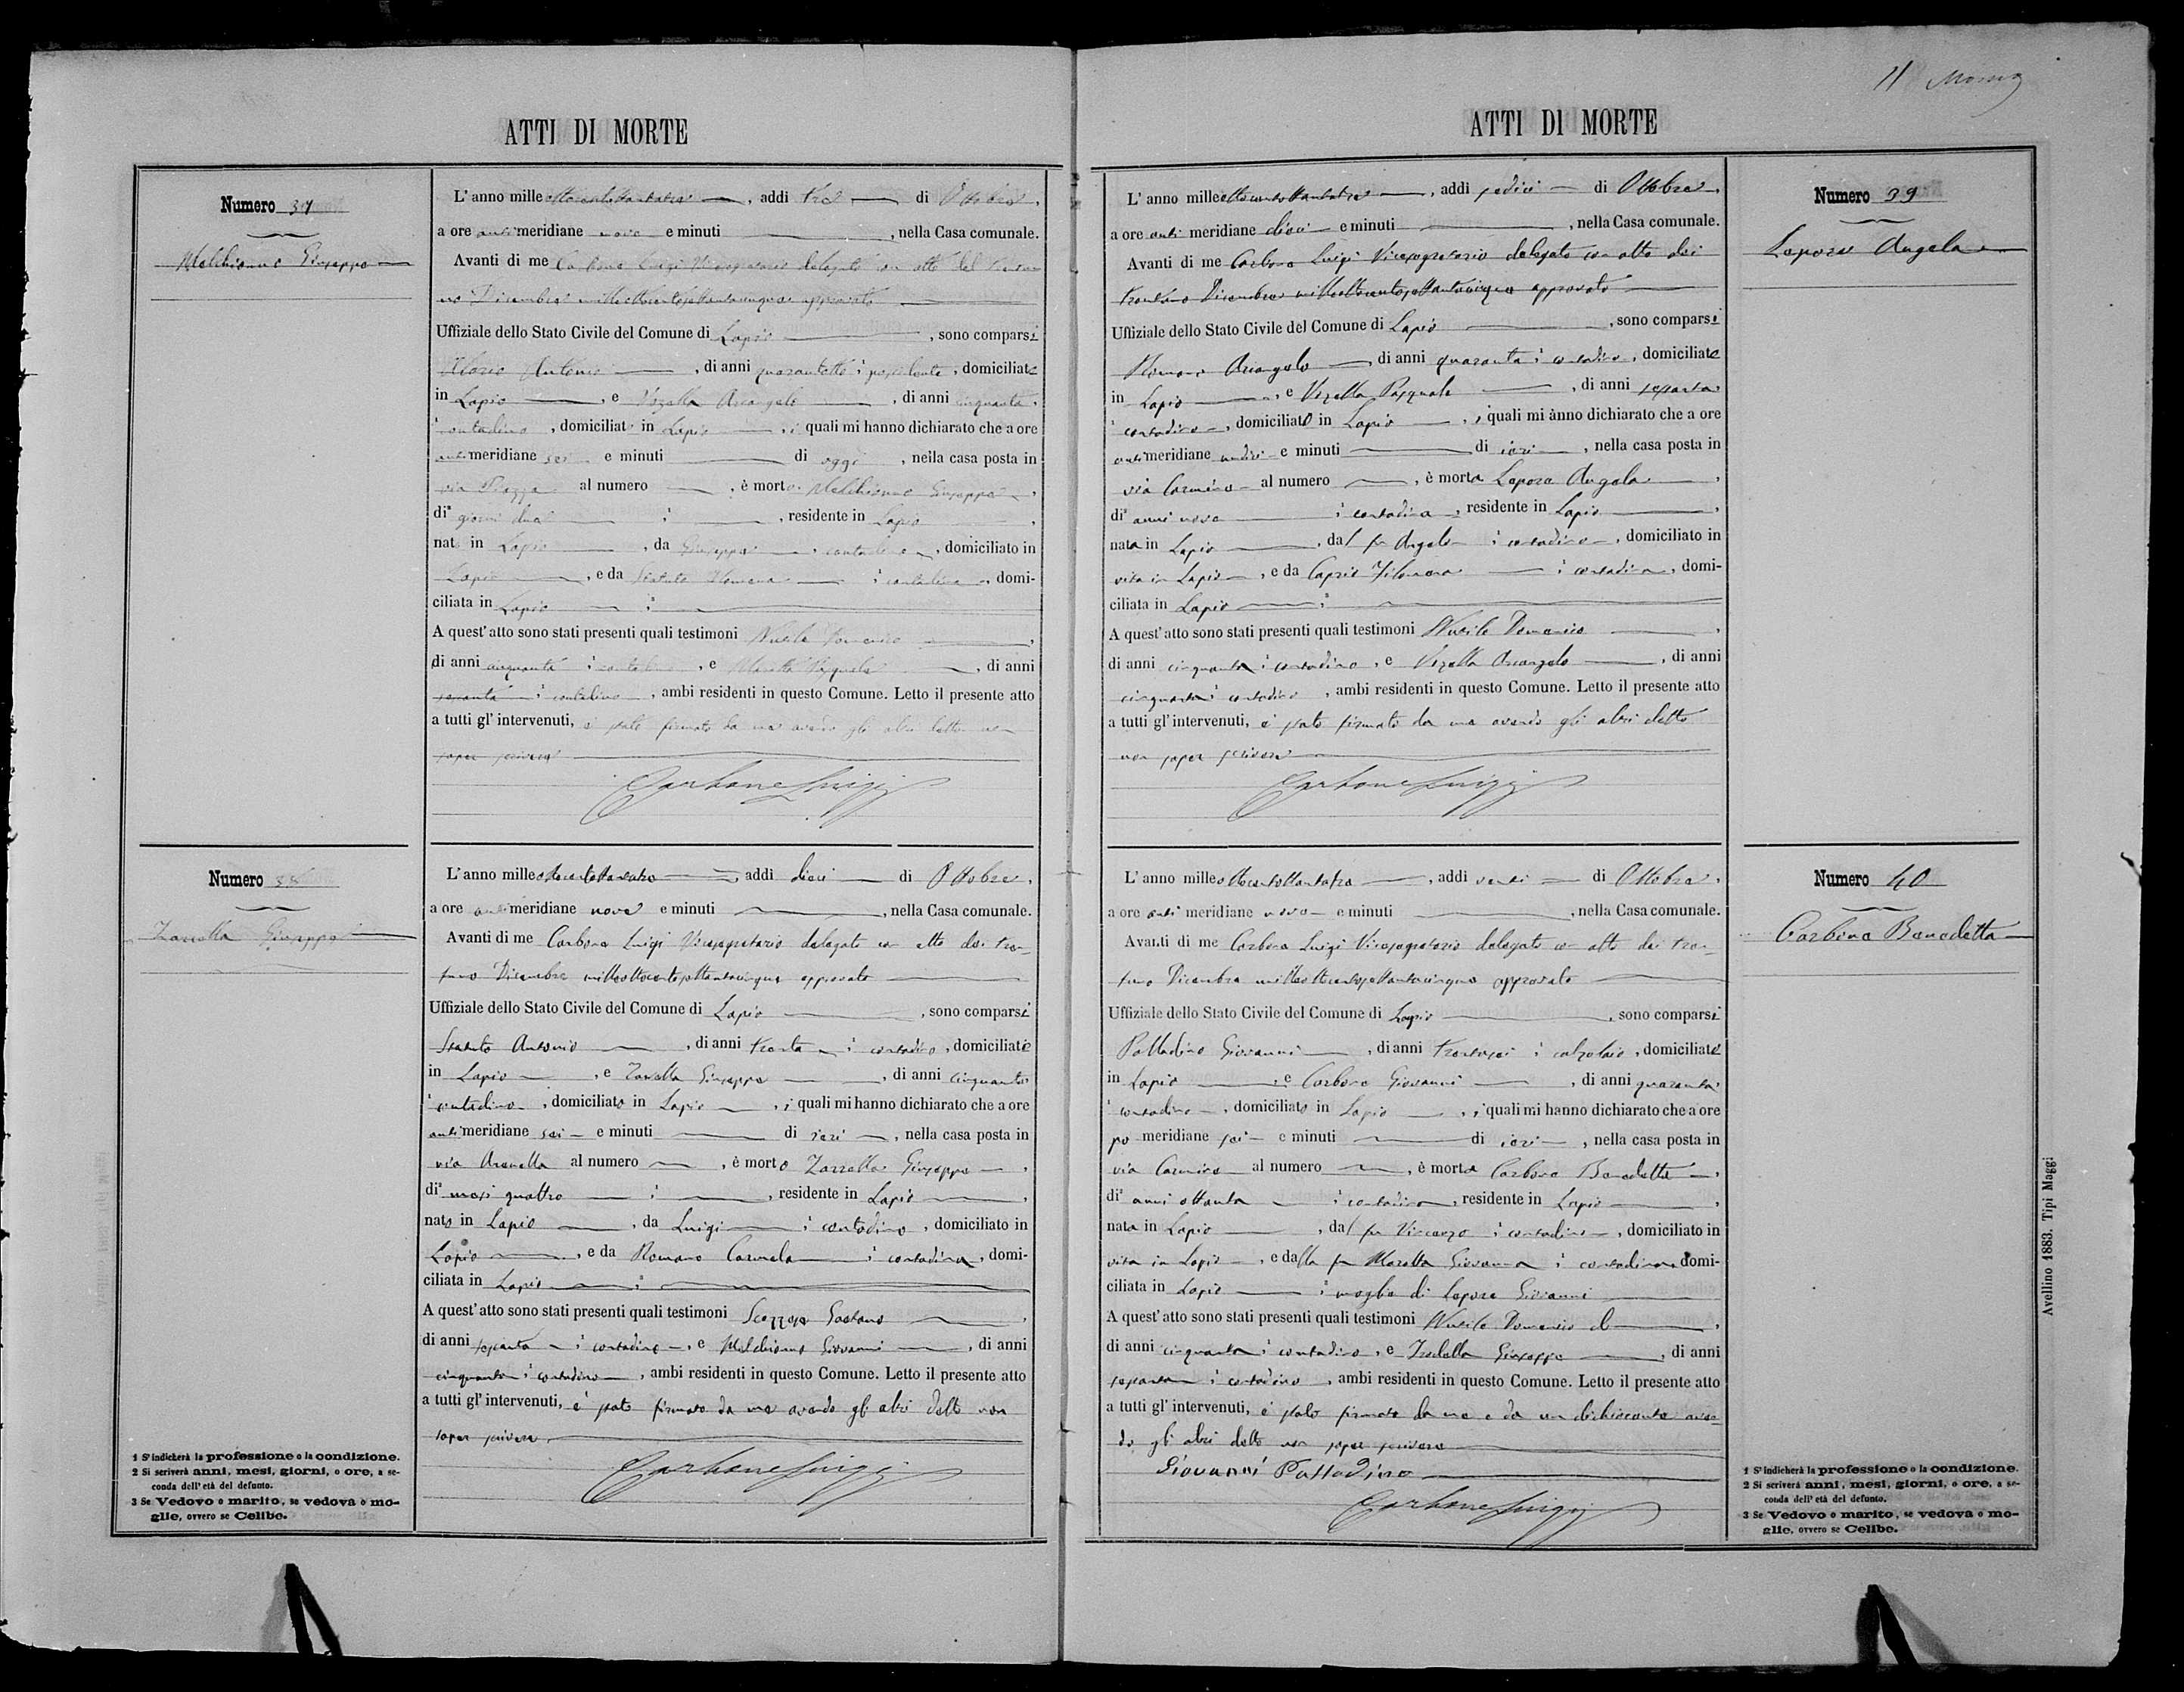 11
ATTI DI MORTE
Numero 37
Melchionno Giuseppe
L'anno milleottocentottantatre, addi tre di Ottobre,
a ore antimeridiane nove e minuti , nella Casa comunale.
Avanti di me Carbone Luigi Vicesegretario delegato con atto del trentu
no Dicembre milleottocentosettantacinque approvato
Uffiziale dello Stato Civile del Comune di Lapio , sono comparsi
Antonio , di anni quarantotto , domiciliato
in Lapio , e Vozella Arcangelo , di anni cinquanta,
contadino , domiciliato in Lapio , i quali mi hanno dichiarato che a ore
antimeridiane sei e minuti di oggi , nella casa posta in
via Piazza al numero , è morto Melchionno Giuseppe ,
di giorni due , residente in Lapio ,
nato in Lapio , da Giuseppe , contadino , domiciliato in
Lapio , e da Statuto , contadina , domi-
ciliata in Lapio
A quest'atto sono stati presenti quali testimoni Nusile Domenico ,
di anni cinquanta , contadino , e Moretta Pasquale , di anni
sessanta , contadino , ambi residenti in questo Comune. Letto il presente atto
a tutti gl'intervenuti, è stato firmato da me avendo gli altri detto non
saper scrivere
Carbone Luigi
Numero 38
Zarrella Giuseppe
L'anno milleottocentottantatre , addi dieci di Ottobre,
a ore antimeridiane nove e minuti , nella Casa comunale.
Avanti di me Carbone Luigi Vicesegretario delegato con atto dei tren-
tuno Dicembre milleottocentosettantacinque approvato
Uffiziale dello Stato Civile del Comune di Lapio , sono comparsi
Statuto Antonio , di anni trenta , contadino , domiciliato
in Lapio , e Zarrella Giuseppe , di anni cinquanta
contadino , domiciliato in Lapio , i quali mi hanno dichiarato che a ore
antimeridiane sei e minuti di ieri , nella casa posta in
via Arenella al numero , è morto Zarrella Giuseppe ,
di mesi quattro , residente in Lapio ,
nato in Lapio , da Luigi , contadino , domiciliato in
Lapio , e da Romano Carmela , contadina , domi-
ciliata in Lapio
A quest'atto sono stati presenti quali testimoni Scozzese Gaetano ,
di anni sessanta , contadino , e Melchionno Giovanni , di anni
cinquanta , contadino , ambi residenti in questo Comune. Letto il presente atto
a tutti gl'intervenuti, è stato firmato da me avendo gli altri detto non
saper scrivere
Carbone Luigi
1 S'indicherà la professione o la condizione.
2 Si scriverà anni, mesi, giorni, o ore, a se-
conda dell'età del defunto.
3 Se Vedovo o marito, se vedova o mo-
glie, ovvero se Celibe.
ATTI DI MORTE
L'anno milleottocentottantatre , addi sedici di Ottobre,
a ore anti meridiane dieci e minuti , nella Casa comunale.
Avanti di me Carbone Luigi Vicesegretario delegato con atto dei
trentuno Dicembre milleottocentosettantacinque approvato
Uffiziale dello Stato Civile del Comune di Lapio , sono comparsi
Romano Arcangelo , di anni quaranta , contadino , domiciliato
in Lapio , e Vozella Pasquale , di anni sessanta
contadino , domiciliato in Lapio , i quali mi ànno dichiarato che a ore
antimeridiane undici e minuti di ieri , nella casa posta in
via Carmine al numero , è morta Lepore Angela ,
di anni nove , contadina , residente in Lapio ,
nata in Lapio , dal fu Angelo , contadino , domiciliato in
vita in Lapio , e da Caprio Filomena , contadina , domi-
ciliata in Lapio
A quest'atto sono stati presenti quali testimoni Nusile Domenico ,
di anni cinquanta , contadino , e Vozella Arcangelo , di anni
cinquanta , contadino , ambi residenti in questo Comune. Letto il presente atto
a tutti gl'intervenuti, è stato firmato da me avendo gli altri detto
non saper scrivere
Carbone Luigi
Numero 39
Lepore Angela
L'anno milleottocentottantatre , addi venti di Ottobre,
a ore anti meridiane nove e minuti , nella Casa comunale.
Avanti di me Carbone Luigi Vicesegretario delegato con atto dei tren-
tuno Dicembre milleottocentosettantacinque approvato
Uffiziale dello Stato Civile del Comune di Lapio , sono comparsi
Palladino Giovanni , di anni trentasei , calzolaio , domiciliato
in Lapio , e Carbone Giovanni , di anni quaranta
contadino , domiciliato in Lapio , i quali mi hanno dichiarato che a ore
po meridiane sei e minuti di ieri , nella casa posta in
via Carmine al numero , è morta Carbone Benedetta ,
di anni ottanta , contadina , residente in Lapio ,
nata in Lapio , dal fu Vincenzo , contadino , domiciliato in
vita in Lapio , e dalla fu Moretta Giovanna , contadina , domi-
ciliata in Lapio , moglie di Lepore Giovanni
A quest'atto sono stati presenti quali testimoni Nusile Domenico ,
di anni cinquanta , contadino , e Giuseppe , di anni
sessanta , contadino , ambi residenti in questo Comune. Letto il presente atto
a tutti gl'intervenuti, è stato firmato da me e da un dichiarante aven-
do gli altri detto non saper scrivere
Giovanni Palladino
Carbone Luigi
Numero 40
Carbone Benedetta
1 S'indicherà la professione o la condizione.
2 Si scriverà anni, mesi, giorni, o ore, a se-
conda dell'età del defunto.
3 Se Vedovo o marito, se vedova o mo-
glie, ovvero se Celibe.
Avellino 1883. Tipi Maggi